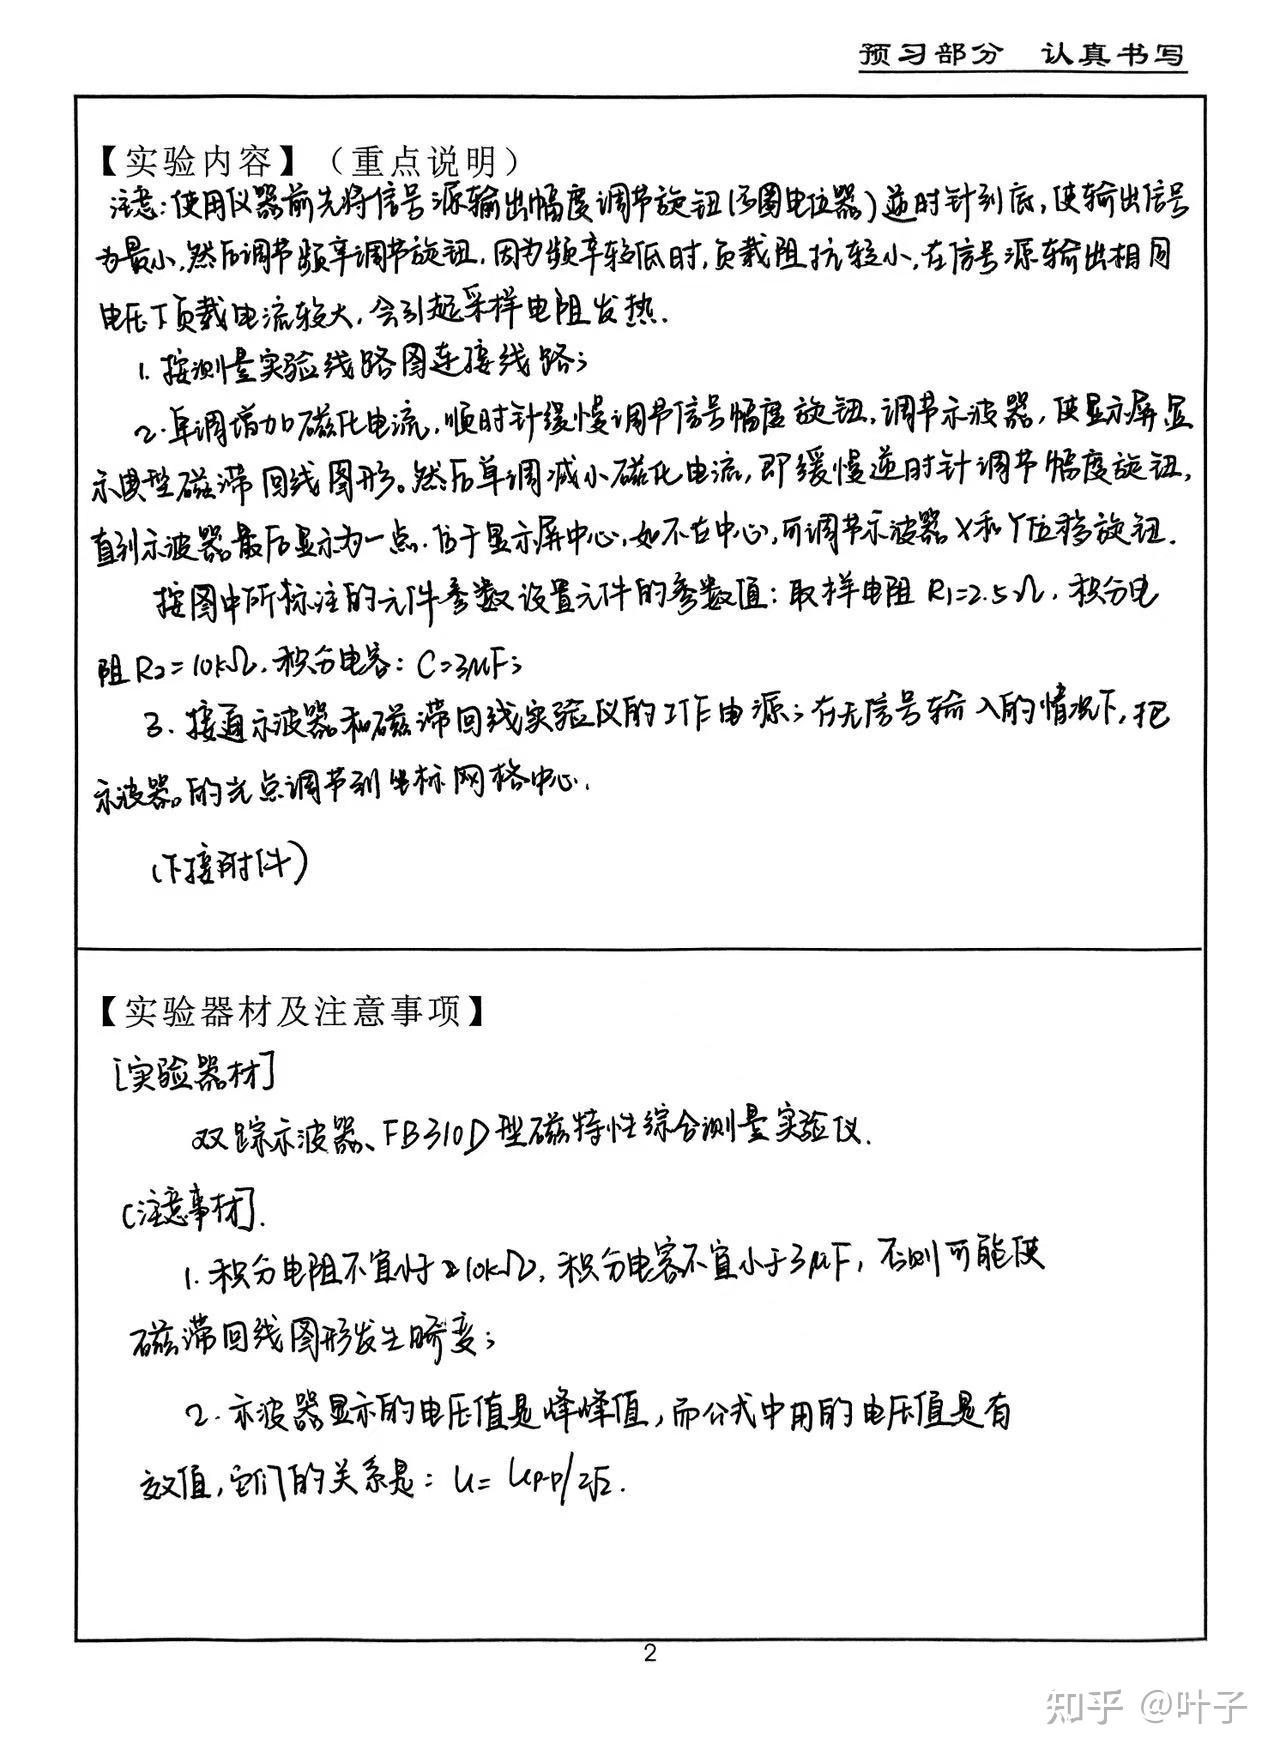 预习部分 认真书写
【实验内容】（重点说明）
注意:使用仪器前先将信号源输出幅度调节旋钮(多圈电位器)逆时针到底,使输出信号
为最小,然后调节频率调节旋钮,因为频率较低时,负载阻抗较小,在信号源输出相同
电压下负载电流较大,会引起采样电阻发热.
1.按测量实验线路图连接线路;
2.单调增加磁化电流,顺时针缓慢调节信号幅度旋钮,调节示波器,使显示屏显
示典型磁滞回线图形。然后单调减小磁化电流,即缓慢逆时针调节幅度旋钮,
直到示波器最后显示为一点.位于显示屏中心,如不在中心,可调节示波器X和Y位移旋钮.
按图中所标注的元件参数设置元件的参数值:取样电阻R1=2.5Ω,积分电
阻R2=10kΩ,积分电容:C=3μF;
3.接通示波器和磁滞回线实验仪的工作电源;在无信号输入的情况下,把
示波器的光点调节到坐标网格中心.
(下接附件)
【实验器材及注意事项】
[实验器材]
双踪示波器、FB310D型磁特性综合测量实验仪.
[注意事材].
1.积分电阻不宜小于10kΩ,积分电容不宜小于3μF,否则可能使
磁滞回线图形发生畸变;
2.示波器显示的电压值是峰峰值,而公式中用的电压值是有
效值,它们的关系是:U=Up-p/2√2.
2
知乎 @叶子